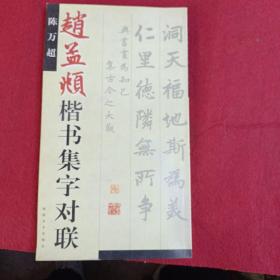 陈万超
趙孟頫
楷书集字对联
洞天福地斯為美
仁里德隣無所争
集古今之大觀